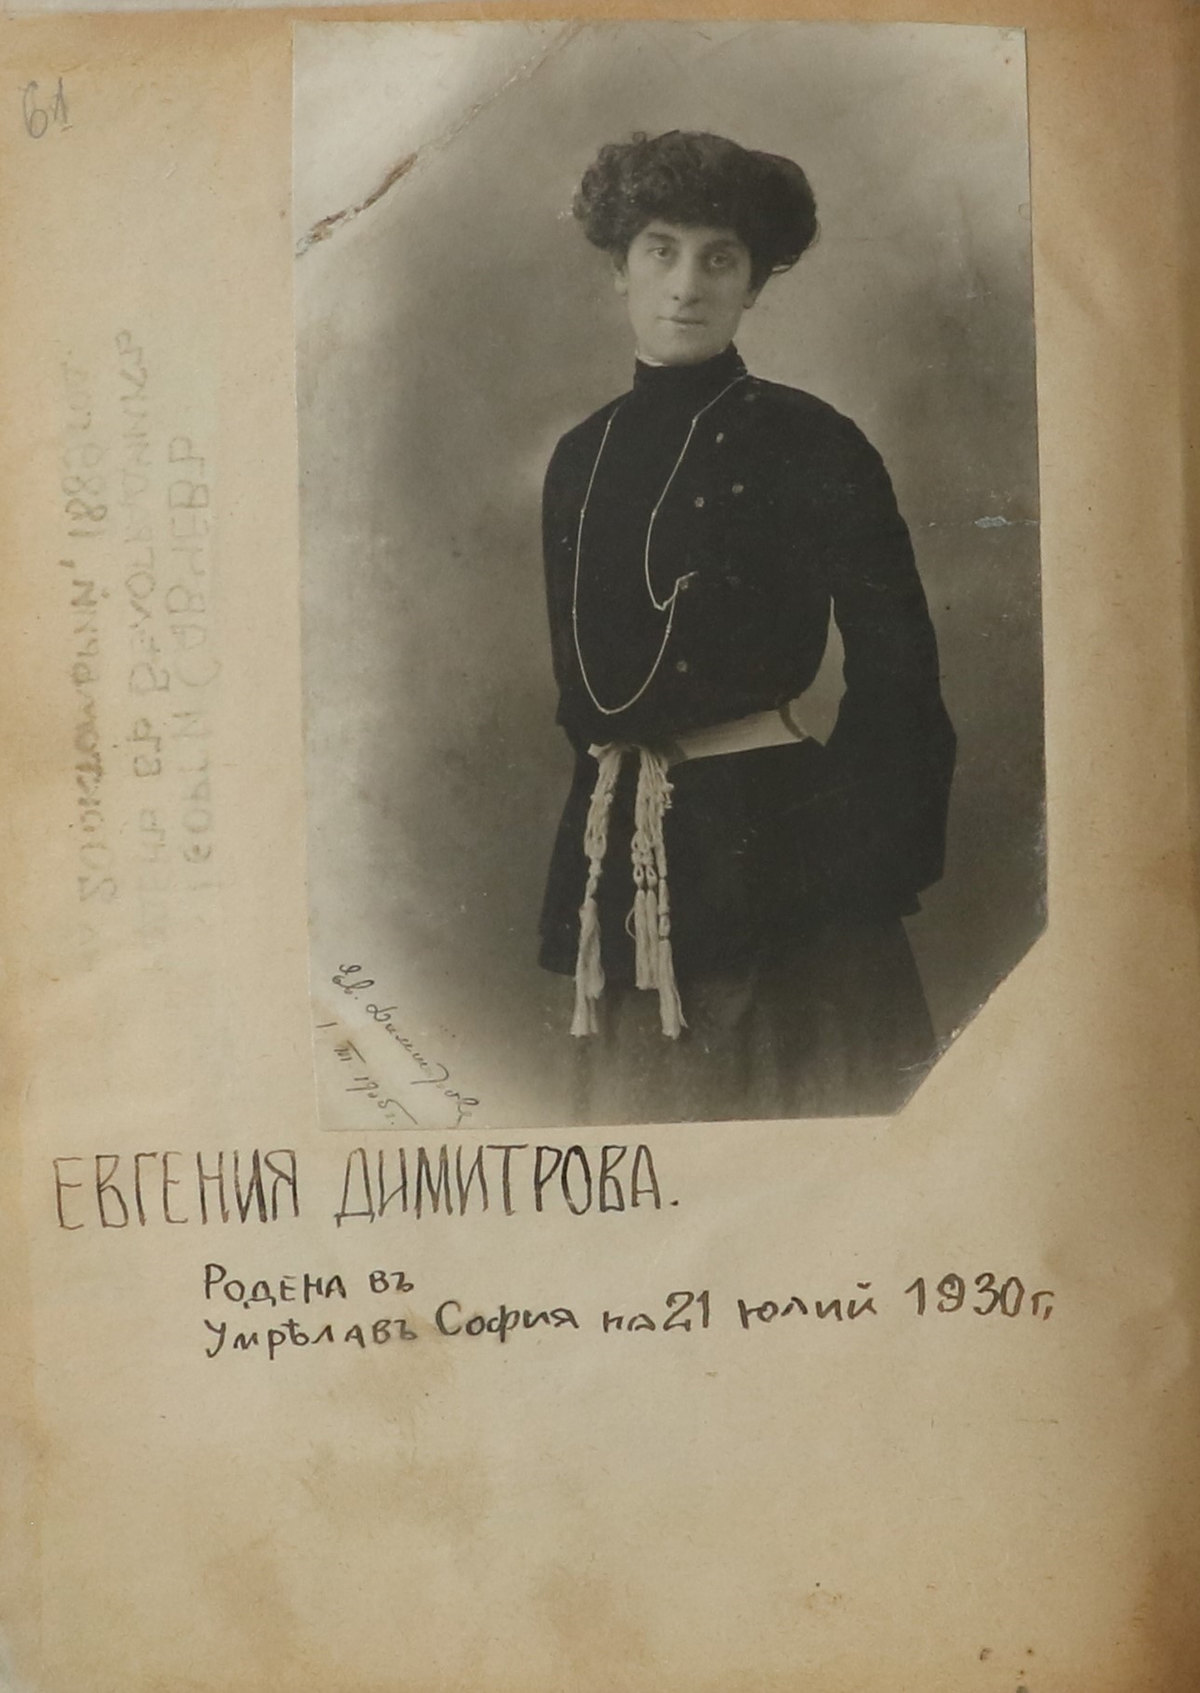 61
Ев. Димитрова
1 III 1905 г.
ЕВГЕНИЯ ДИМИТРОВА.
РОДЕНА ВЪ
УМРѢЛА ВЪ СОФИЯ на 21 юлий 1930 г.